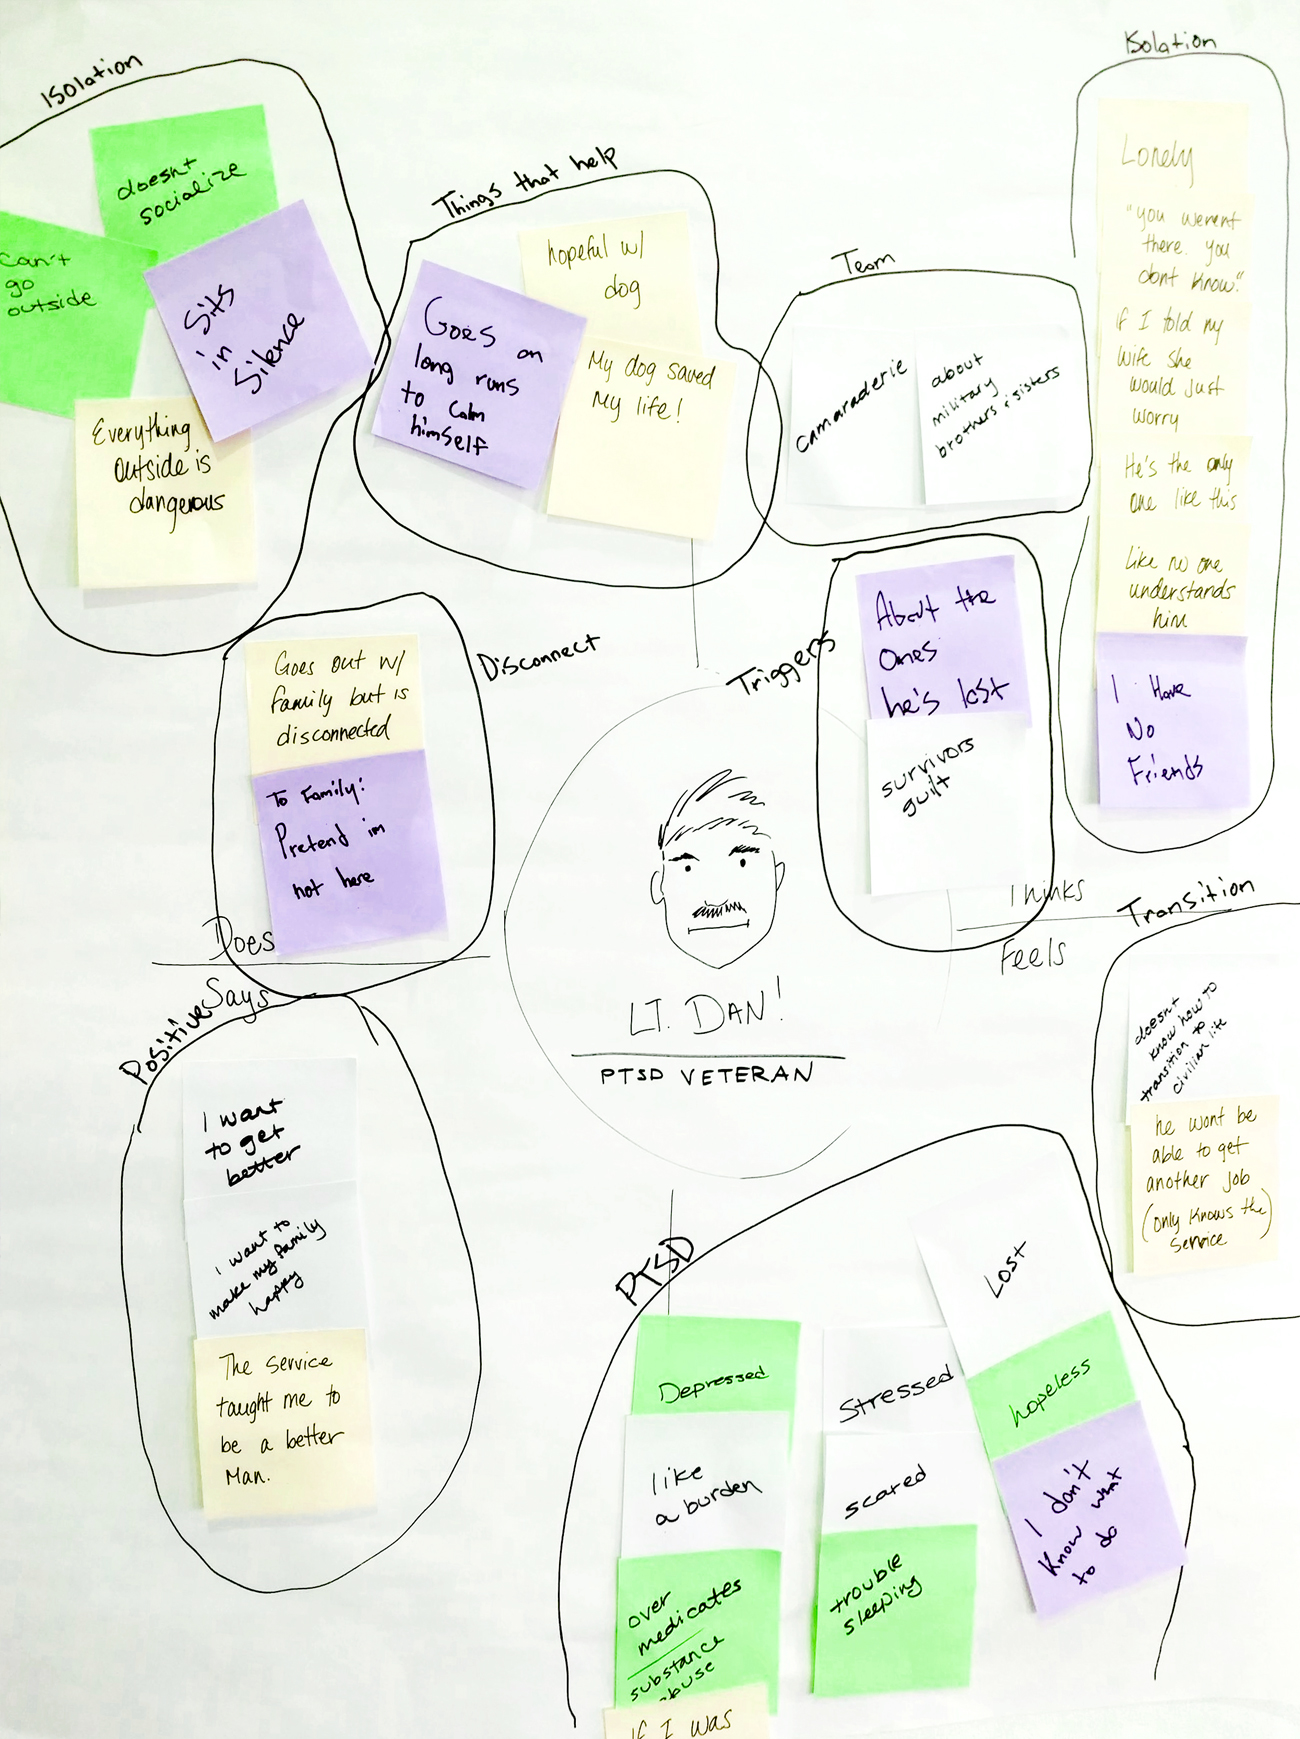 Isolation
doesnt
socialize
can't
go
outside
Sits
in
Silence
Everything
outside is
dangerous
Things that help
hopeful w/
dog
Goes on
long runs
to calm
himself
My dog saved
My life!
Team
camaraderie
about
military
brothers & sisters
Isolation
Lonely
"you werent
there. you
dont know."
if I told my
wife she
would just
worry
He's the only
one like this
Like no one
understands
him
I Have
No
Friends
Disconnect
Goes out w/
family but is
disconnected
To Family:
Pretend im
not here
Triggers
About the
ones
he's lost
survivors
guilt
Does
Says
Thinks
Feels
LT. DAN!
PTSD VETERAN
Transition
doesnt
know how to
transition to
civilian life
he wont be
able to get
another job
(only knows the
service)
Positive
I want
to get
better
I want to
make my family
happy
The service
taught me to
be a better
Man.
PTSD
Depressed
like
a burden
over
medicates
substance
abuse
if I was
Stressed
scared
trouble
sleeping
Lost
hopeless
I don't
know what
to do